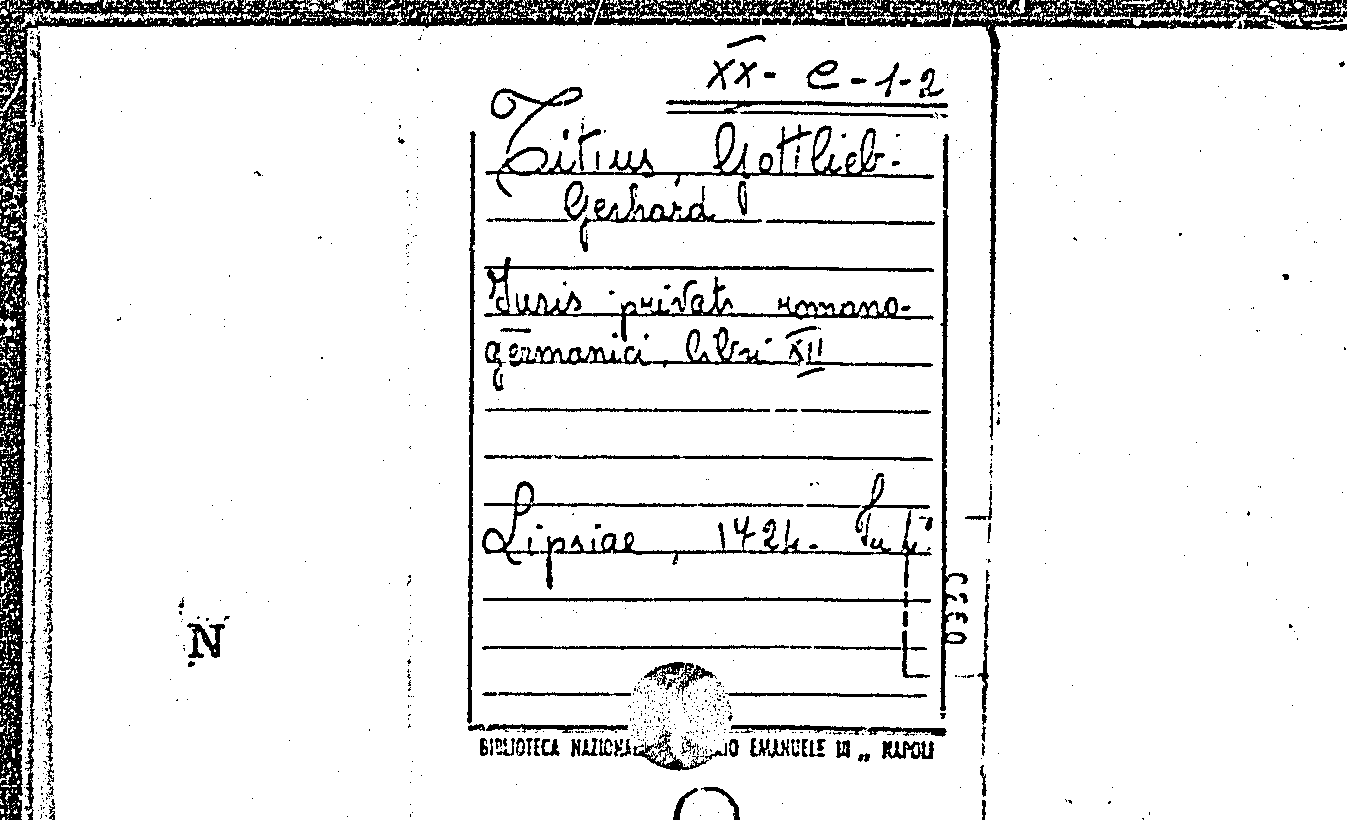 XX- C-1-2
Titius, Gottlieb-
Gerhard
Iuris privati romano-
germanici, libri XII
Lipsiae, 1724.
N
BIBLIOTECA NAZIONA IO EMANUELE III „ NAPOLI